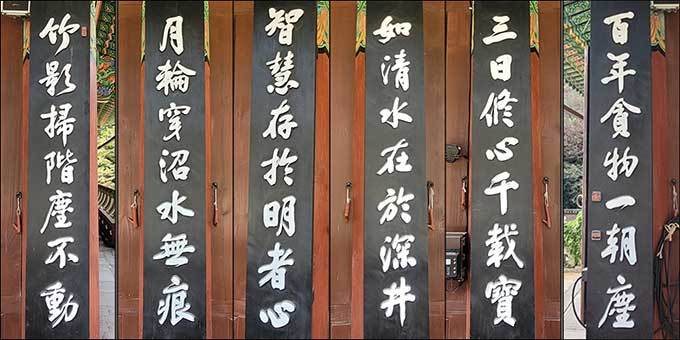 竹影掃階塵不動
月輪穿沼水無痕
智慧存於明者心
如清水在於深井
三日修心千載寶
百年貪物一朝塵